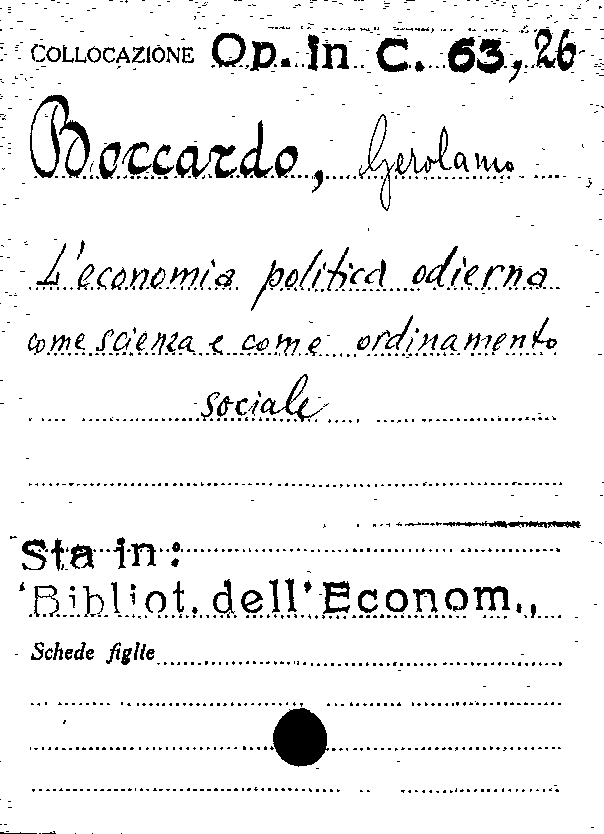 COLLOCAZIONE Op. in C. 63, 26
Boccardo, Gerolamo
L'economia politica odierna
come scienza e come ordinamento
sociale
Sta in:
'Bibliot. dell' Econom.,
Schede figlie